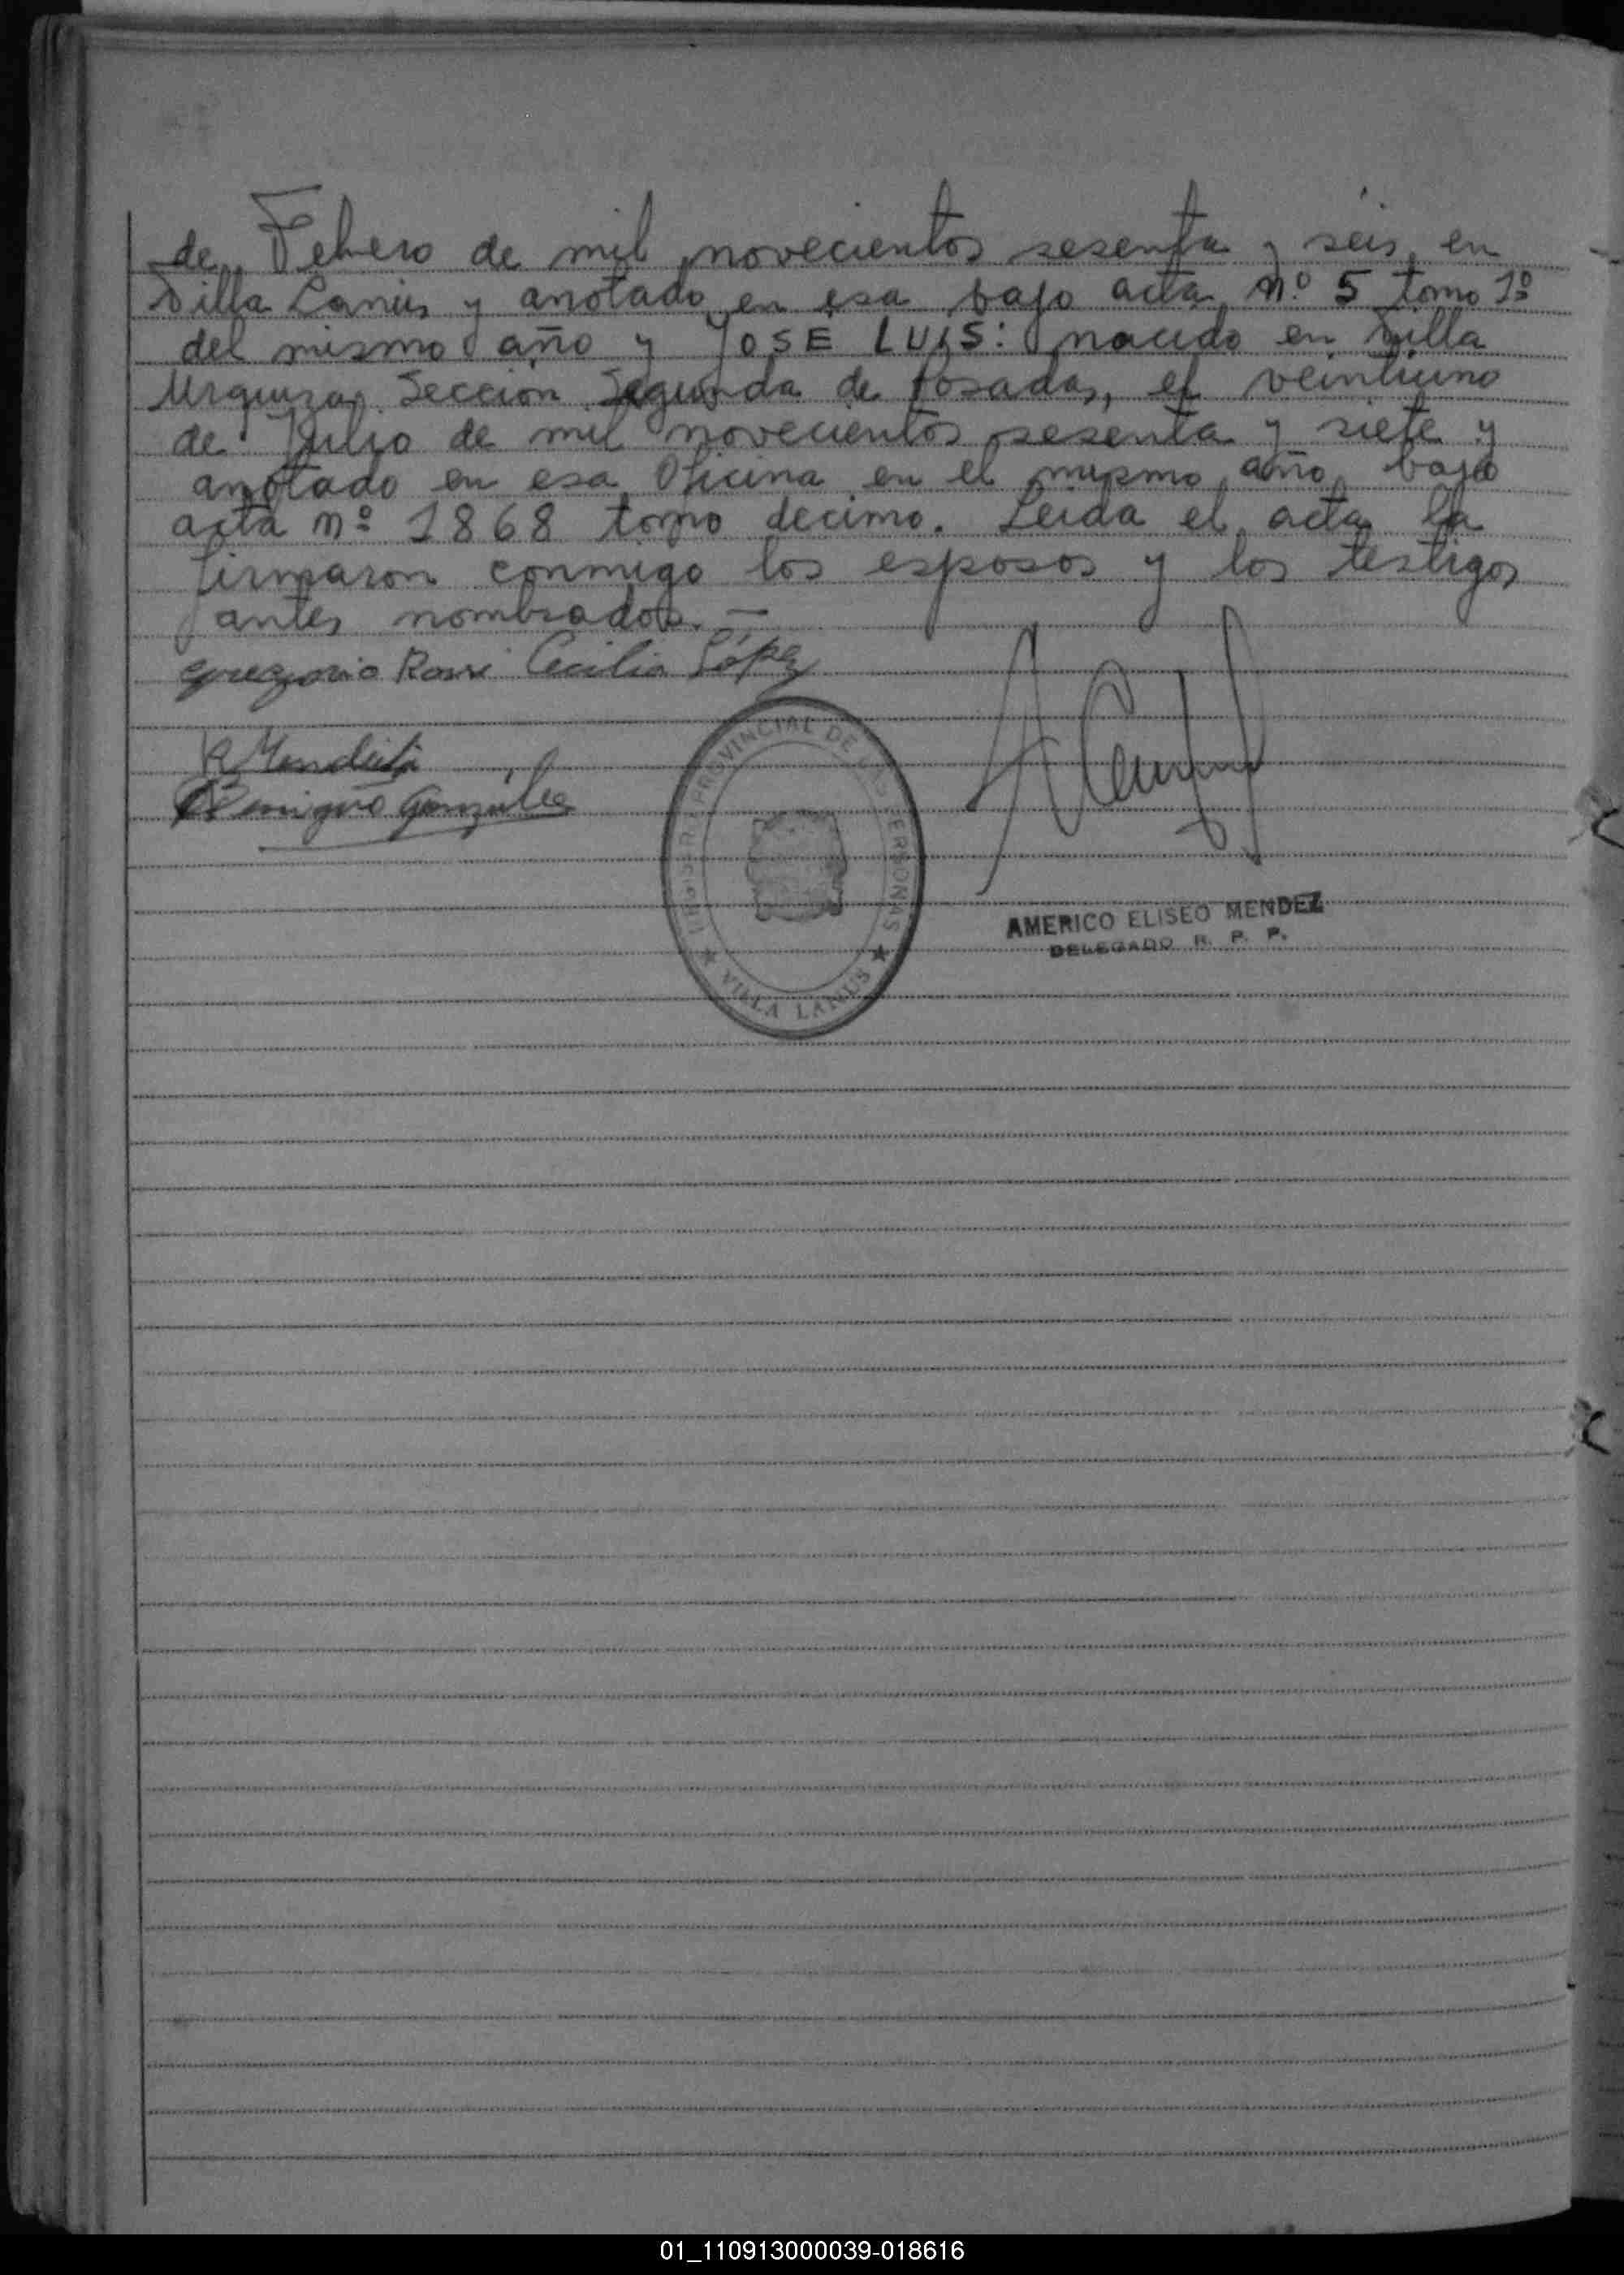 de Febrero de mil novecientos sesenta y seis en
Villa Lanús y anotado en esa bajo acta nº 5 tomo 1º
del mismo año y JOSE LUIS: nacido en Villa
Urquiza Sección Segunda de Posadas, el veintiuno
de Julio de mil novecientos sesenta y siete y
anotado en esa Oficina en el mismo año bajo
acta nº 1868 tomo decimo. Leida el acta la
firmaron conmigo los esposos y los testigos
antes nombrados. —
Gregorio Cecilia López
Benigno González
REGISTRO PROVINCIAL DE LAS PERSONAS
★ VILLA LANUS ★
AMERICO ELISEO MENDEZ
DELEGADO R. P. P.
01_110913000039-018616